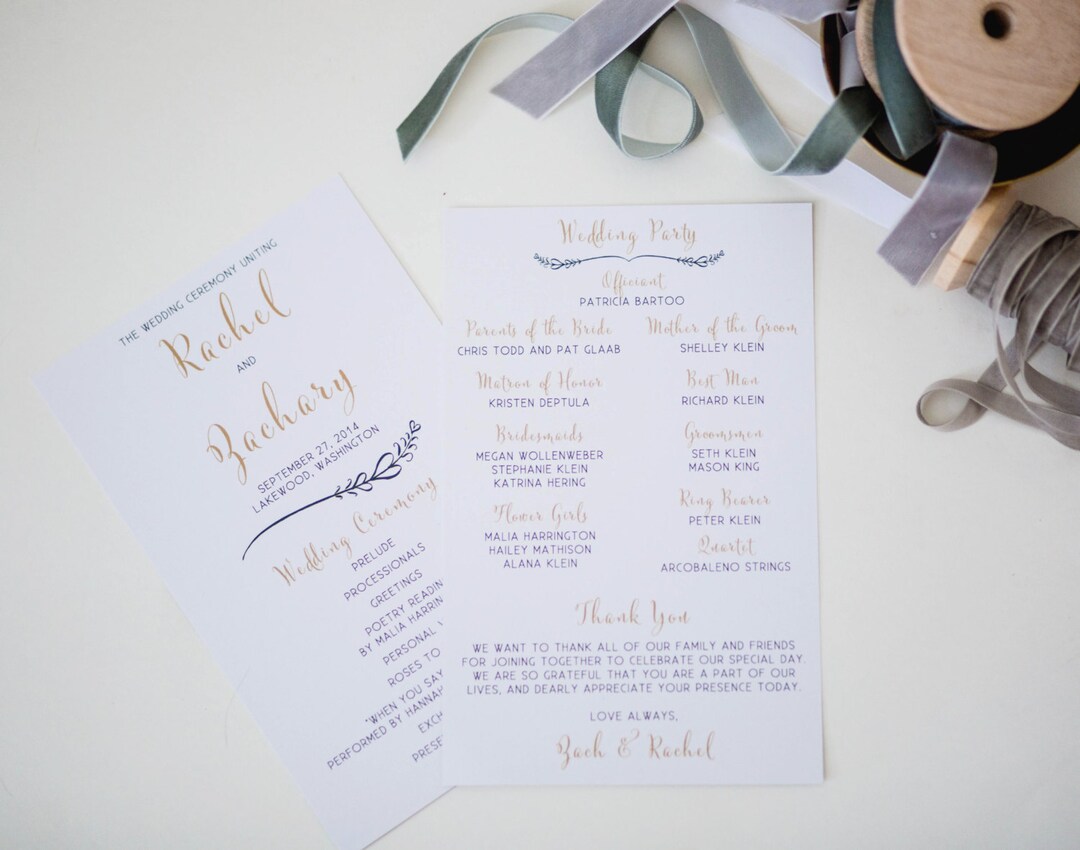 THE WEDDING CEREMONY UNITING
Rachel
AND
Zachary
SEPTEMBER 27, 2014
LAKEWOOD, WASHINGTON
Wedding Ceremony
PRELUDE
PROCESSIONALS
GREETINGS
POETRY
BY MALIA
PERSONAL
ROSES TO
"WHEN YOU SAY
PERFORMED BY HANNAH
Wedding Party
Officiant
PATRICIA BARTOO
Parents of the Bride
CHRIS TODD AND PAT GLAAB
Mother of the Groom
SHELLEY KLEIN
Matron of Honor
KRISTEN DEPTULA
Best Man
RICHARD KLEIN
Bridesmaids
MEGAN WOLLENWEBER
STEPHANIE KLEIN
KATRINA HERING
Groomsmen
SETH KLEIN
MASON KING
Flower Girls
MALIA HARRINGTON
HAILEY MATHISON
ALANA KLEIN
Ring Bearer
PETER KLEIN
Quartet
ARCOBALENO STRINGS
Thank You
WE WANT TO THANK ALL OF OUR FAMILY AND FRIENDS
FOR JOINING TOGETHER TO CELEBRATE OUR SPECIAL DAY.
WE ARE SO GRATEFUL THAT YOU ARE A PART OF OUR
LIVES, AND DEARLY APPRECIATE YOUR PRESENCE TODAY.
LOVE ALWAYS,
Zach & Rachel